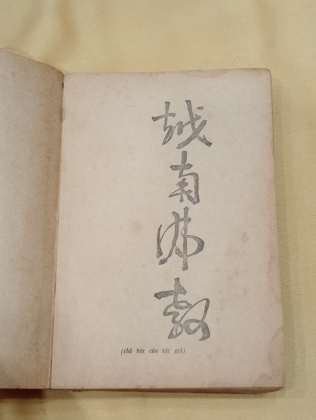 越南佛教
(chữ bút của tác giả)